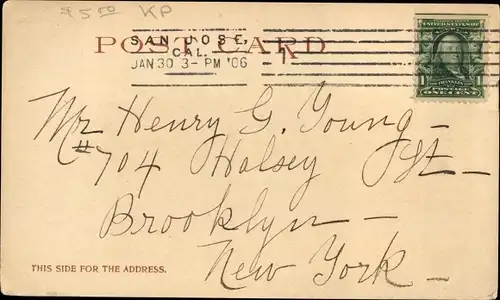 $5.00 KP
POST CARD
SAN JOSE,
CAL.
JAN 30 3-PM '06
1
UNITED STATES OF
FRANKLIN
1 POSTAGE 1
ONE CENT
Mr Henry G. Young -
#704 Halsey St -
Brooklyn -
New York -
THIS SIDE FOR THE ADDRESS.